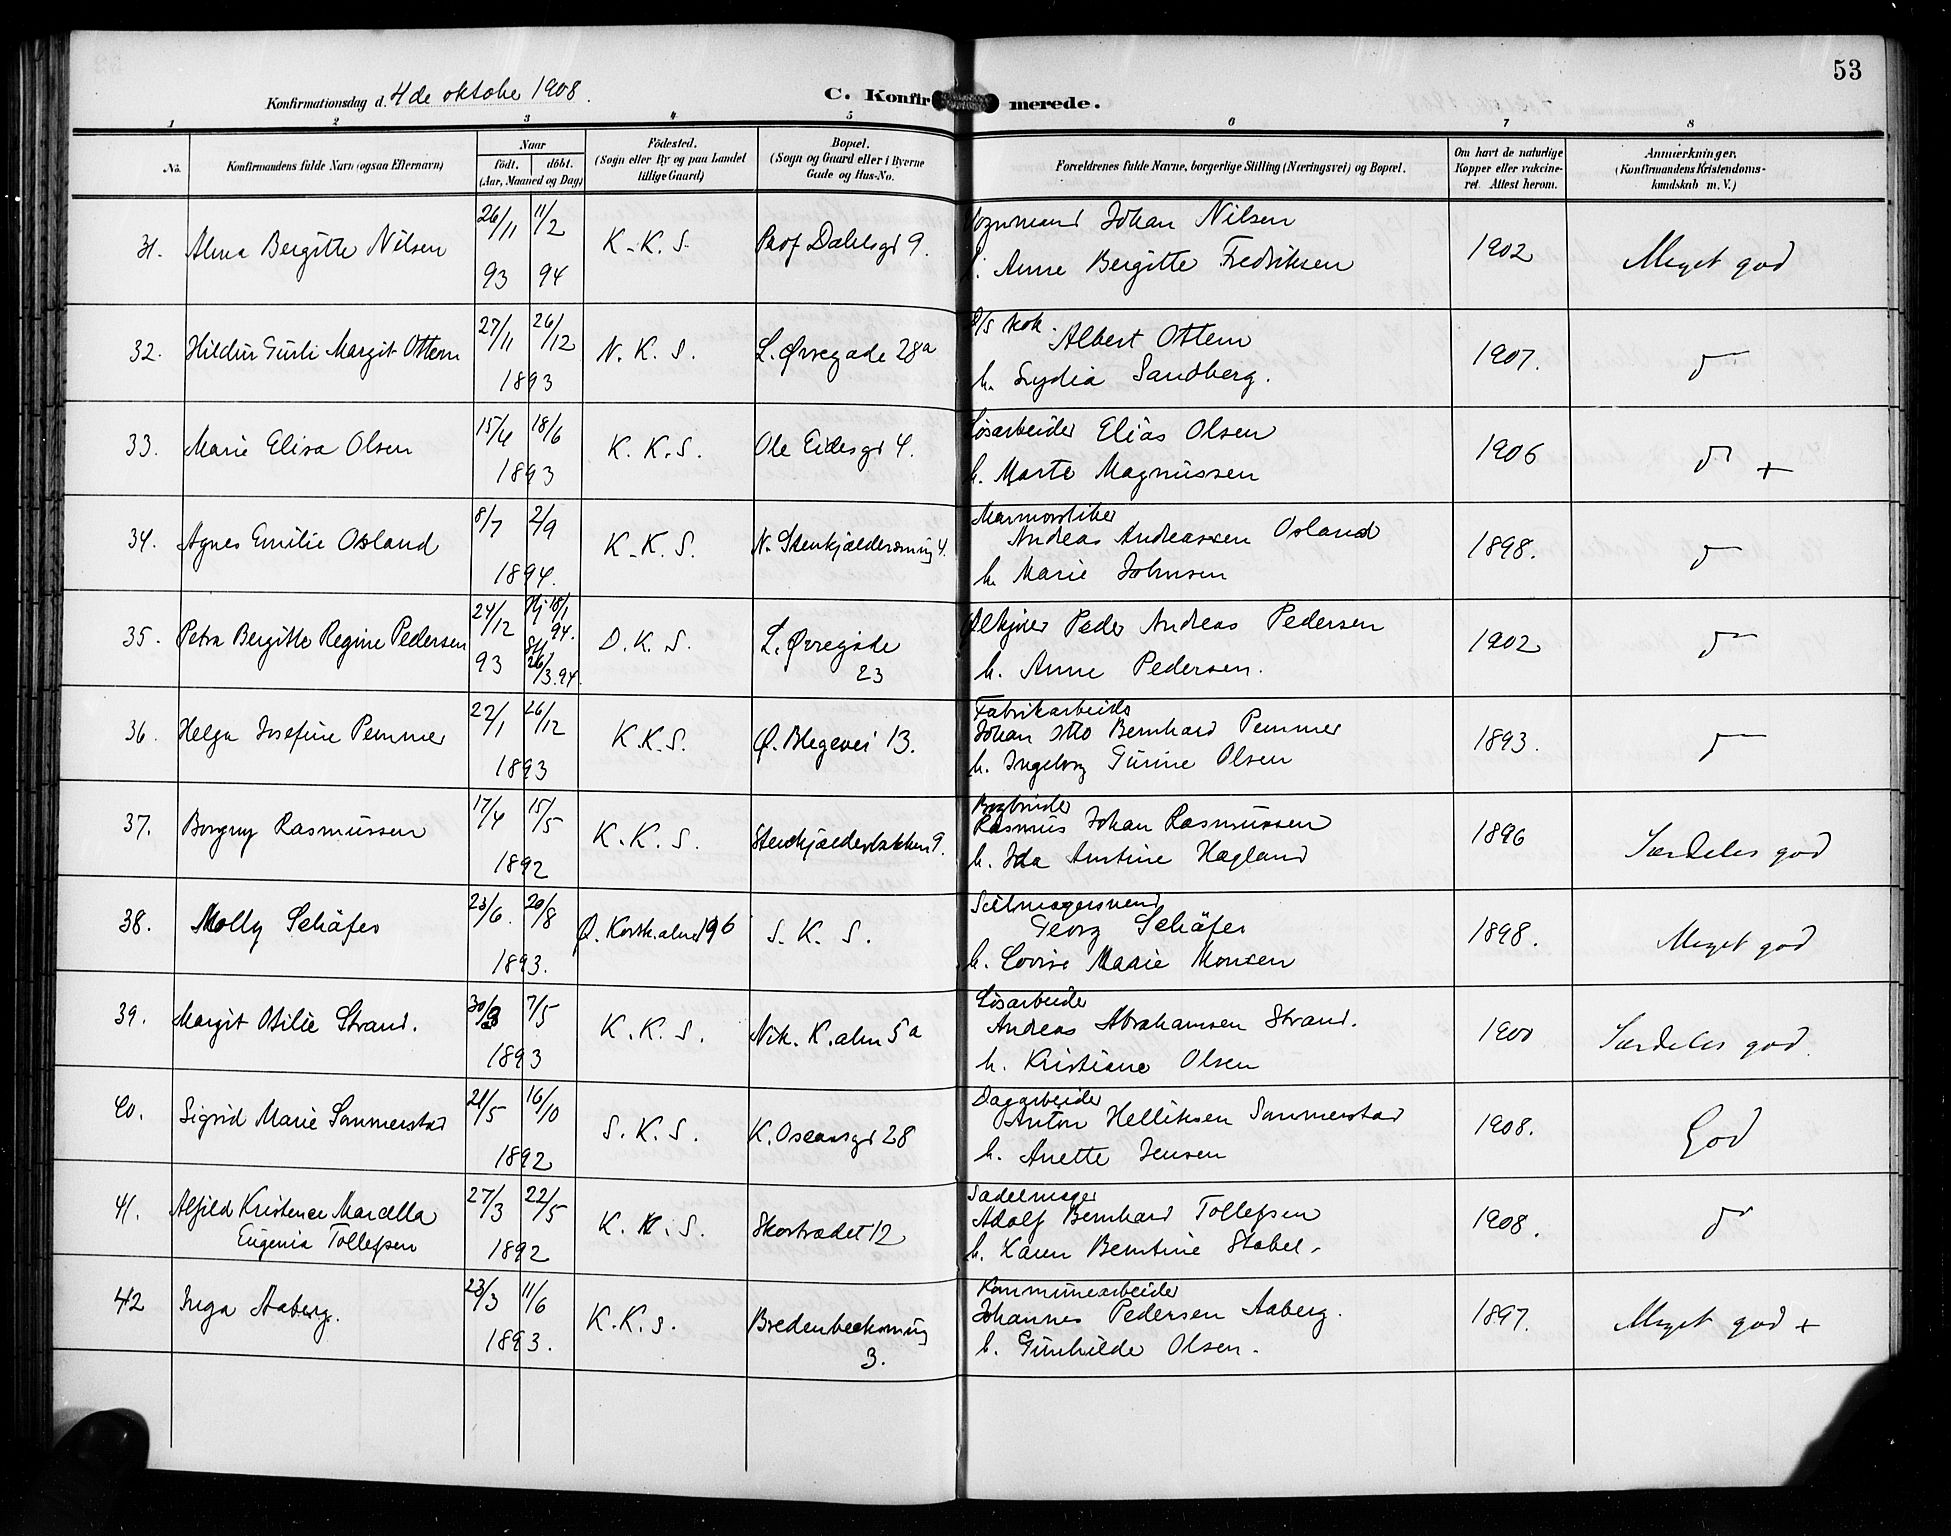 53
Konfirmationsdag d. 4de oktobe 1908.
C. Konfirmerede.
1 2 3 4 5 6 7 8
No. Konfirmandens fulde Navn (ogsaa Efternavn) Naar födt. döbt. (Aar, Maaned og Dag) Födested. (Sogn eller By og paa Landet tillige Gaard) Bopæl. (Sogn og Gaard eller i Byerne Gade og Hus-No. Forældrenes fulde Navne, borgerlige Stilling (Næringsvei) og Bopæl. Om havt de naturlige Kopper eller vakcineret. Attest herom. Anmærkninger. (Konfirmandens Kristendomskundskab m. V.)
31. Alma Bergitte Nilsen 26/11 93 11/2 94 K. K. S. Prof Dahlsgd 9. Johan Nilsen
Anne Bergitte Fredriksen 1902 Meget god
32. Hildur Gurli Margit Ottem 27/11 26/12 1893 N. K. S. L. Øvregade 28a D/s kok. Albert Ottem
h. Lydia Sandberg. 1907. do
33. Marie Elisa Olsen 15/4 18/6 1893 K. K. S. Ole Eidesgd 4. Løsarbeider Elias Olsen
h. Marte Magnussen 1906 do +
34. Agnes Emilie Osland 8/7 2/9 1894. K. K. S. N. Stenkjeldersmug 4. Andreas Andreassen Osland
h. Marie Johnsen 1898. do
35. Petra Bergitte Regine Pedersen 24/12 93 Hj 18/1 94. 26/3.94. D. K. S. L. Øvregade 23 Peder Andreas Pedersen
h. Anne Pedersen. 1902 do
36. Helga Josefine Pemmer 22/1 26/12 1893 K. K. S. Ø. Blegevei 13. Fabrikarbeid.
Johan Otto Bernhard Pemmer
h. Ingeborg Gurine Olsen 1893. do
37. Borgny Rasmussen 17/4 15/5 1892 K. K. S. Stenkjælderbakken 9. Bogbinder
Rasmus Johan Rasmussen
h. Ida Hagland 1896 Særdeles god
38. Molly Schäfer 23/6. 20/8 1893. S. K. S. Seilmagersvend
Georg Schäfer
h. Lovise Marie Monsen 1898. Meget god
39. Margit Otilie Strand. 30/3 7/5 1893 K. K. S. Nik. K. alm 5a Løsarbeider
Andreas Abrahamsen Strand.
h. Kristiane Olsen 1900 Særdeles god.
40. Sigrid Marie Sommerstad 21/5 16/10 1892 S. K. S. K. Oscarsgd 28 Dagarbeider
Anton Helliksen Sommerstad
h. Anette Jensen 1908. God
41. Alfild Kristence Marcella
Eugenia Tollefsen 27/3 22/5 1892 K. K. S. Skostrædet 12 Sadelmager
Adolf Bernhard Tollefsen
h. Karen Berntine Stabel. 1908. do
42 Inga Aaberg. 23/3 11/6 1893. K. K. S. Bredenbecksmug 3. Kommunearbeider
Johannes Pedersen Aaberg.
h. Gunhilde Olsen. 1897. Meget god +